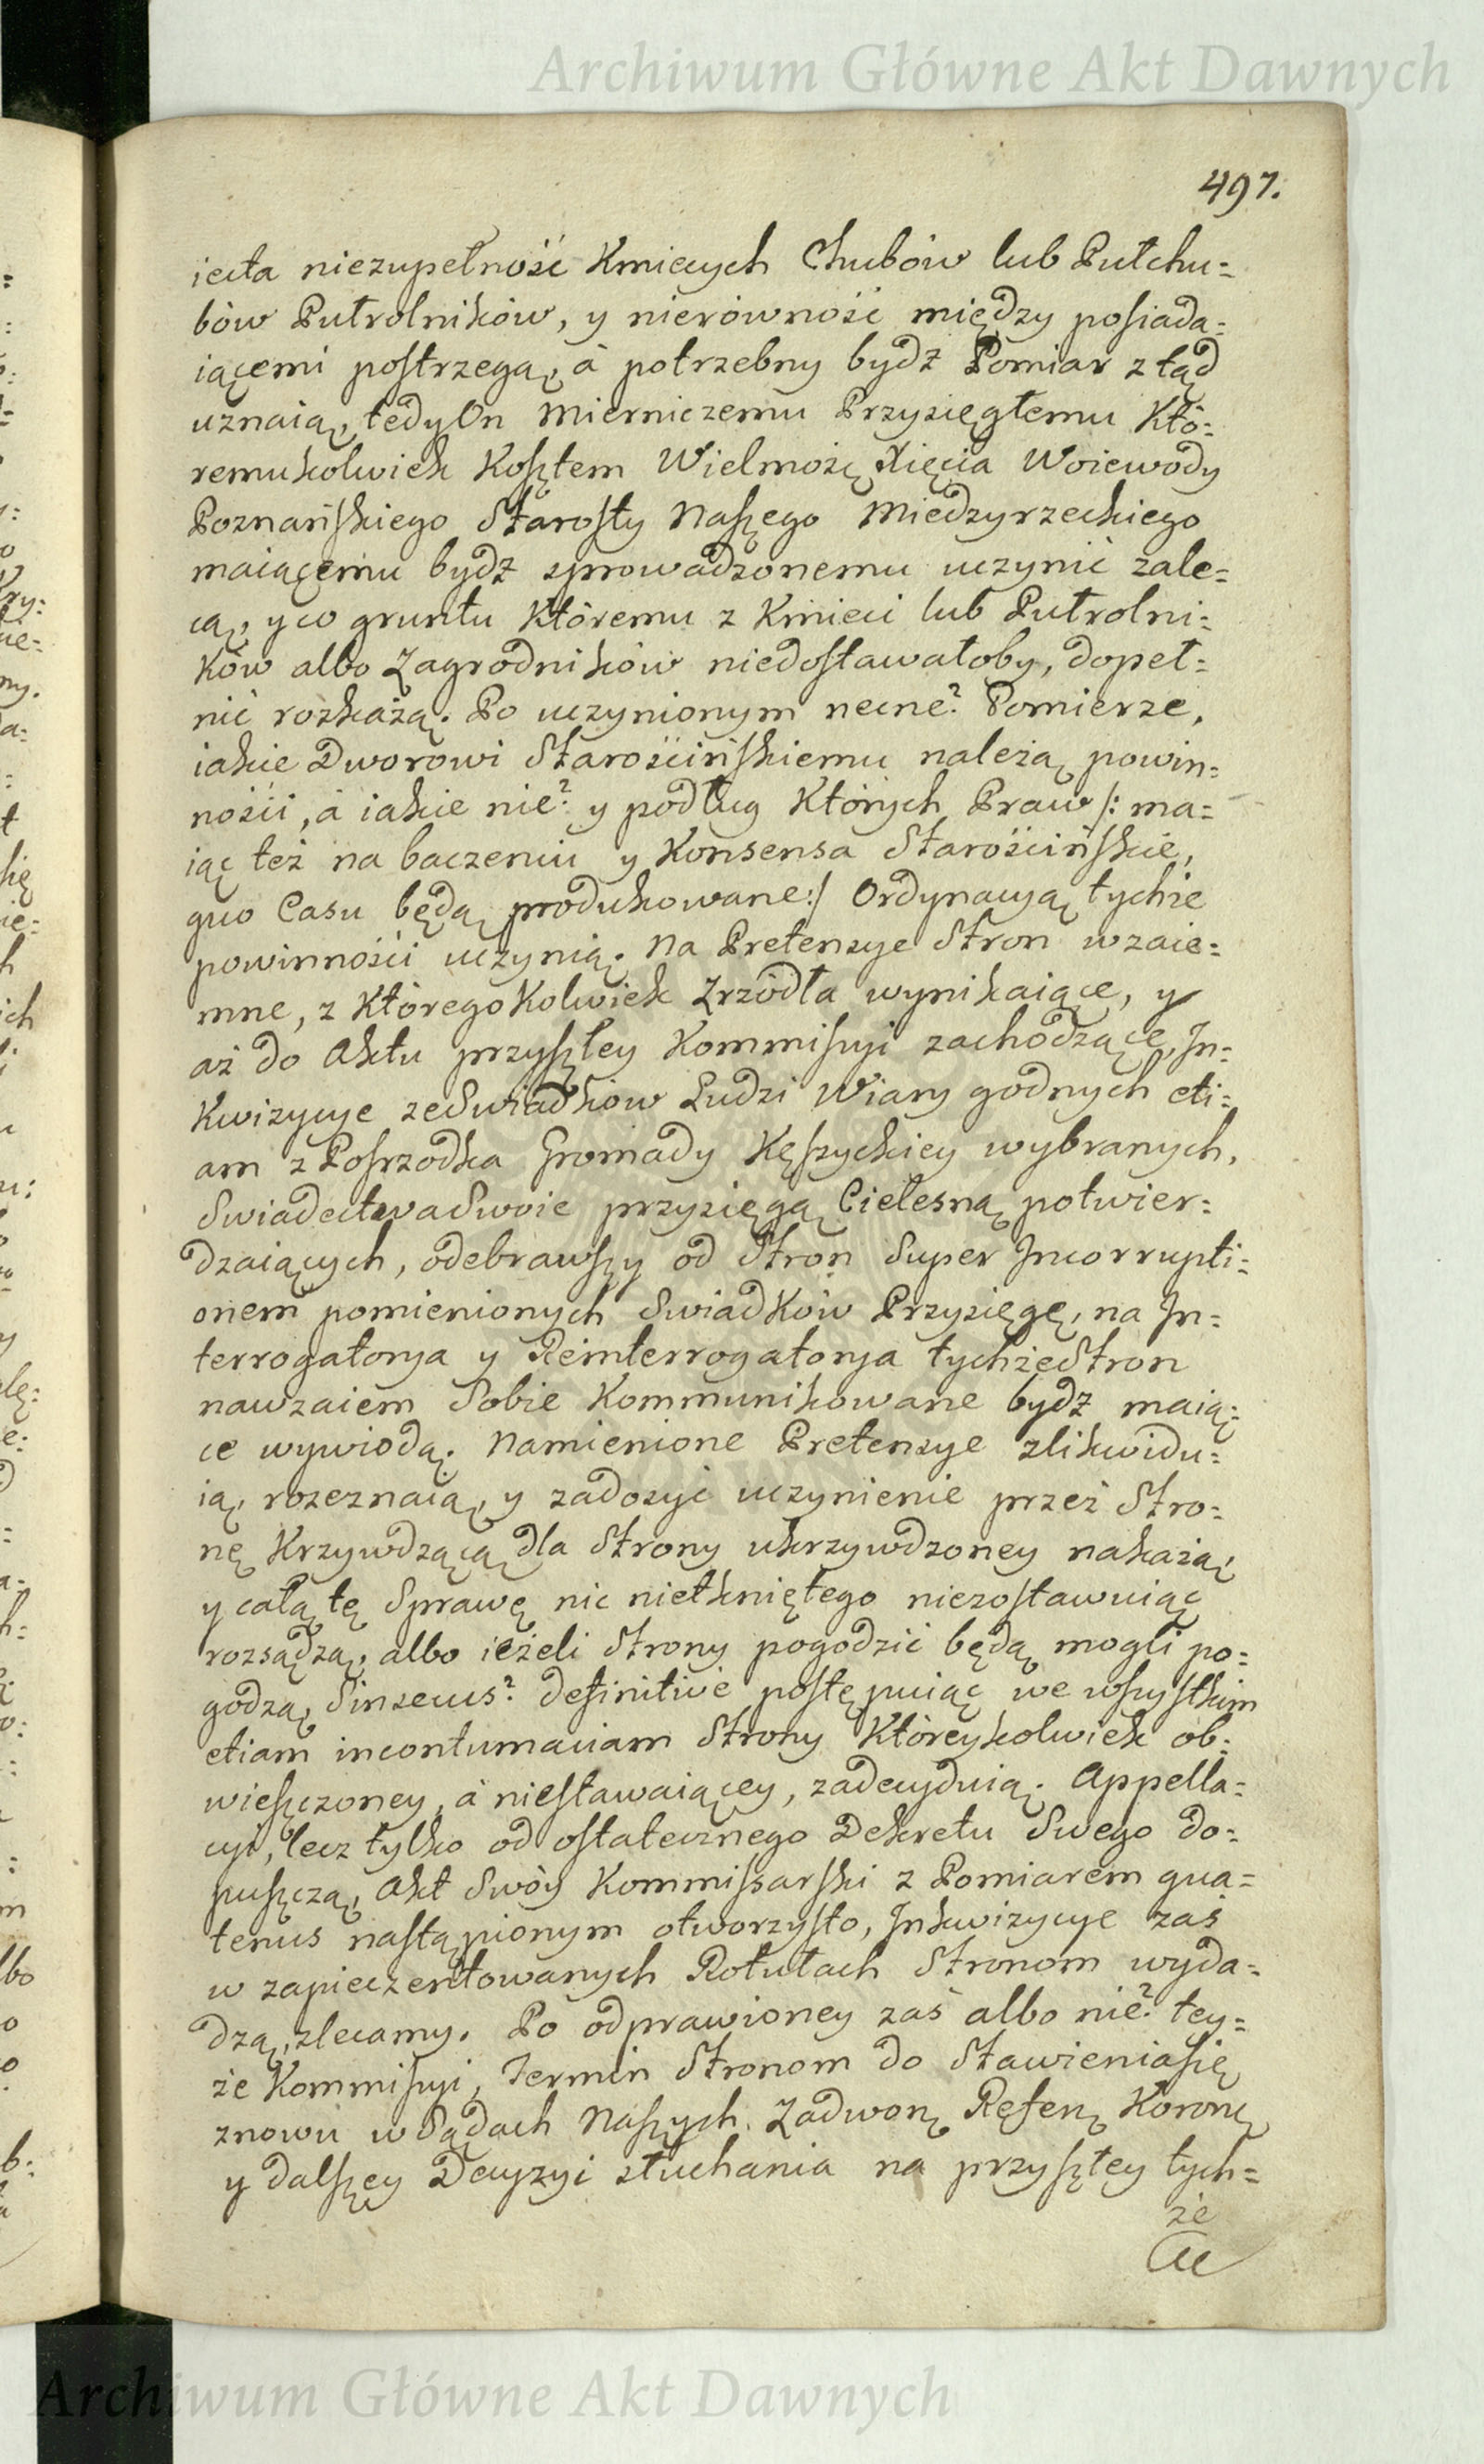 Archiwum Główne Akt Dawnych
497.
iecta niezupełność Kmiecych Chubów lub Pułchu=
bów Pułrolników, y nierówność między posiada=
iącemi postrzegą, à potrzebny bydz Pomiar ztąd
uznaią, tedy On Mierniczemu Przysięgłemu Któ=
remukolwiek Kosztem Wielmożę Xięcia Woiewody
Poznańskiego Starosty Naszego Miedzyrzeckiego
maiącemu bydz sprowadzonemu uczynić zale=
cą, y co gruntu Któremu z Kmieci lub Pułrolni=
Ków albo Zagrodników niedostawałoby, dopeł=
nić rozkażą. Po uczynionym necne? Pomierze,
iakie Dworowi Starościńskiemu należą powin=
ności, à iakie nie? y podług Których Praw /: ma=
iąc też na baczeniu y Konsensa Starościńskie,
quo Casu będą produkowane :/ Ordynacyą tychże
powinności uczynią. Na Pretensye Stron wzaie=
mne, z Którego Kolwiek Zrzódła wynikaiące, y
aż do Aktu przyszłey Kommissyi zachodzące, In=
Kwizycye ze Swiadków Ludzi Wiary godnych eti=
am z Posrzodka Gromady Kęszyckiey wybranych,
Swiadectwa Swoie przysięgą Cielesną potwier=
dzaiących, odebrawszy od Stron Super Incorrupti=
onem pomienionych Swiadków Przysięgę, na In=
terrogatorya y Reinterrogatorya tychże Stron
nawzaiem Sobie Kommunikowane bydz maią=
ce wywiodą. Namienione Pretensye zlikwidu=
ią, rozeznaią, y zadosyć uczynienie przez Stro=
nę Krzywdzącą dla Strony ukrzywdzoney nakażą,
y całą tę Sprawę nic nietkniętego niezostawuiąc
rozsądzą, albo ieżeli Strony pogodzić będą mogli po=
godzą, Sinsecus? definitive postępuiąc we wszystkim
etiam incontumaciam Strony Któreykolwiek ob=
wieszczoney, à niestawaiącey, zadecyduią. Appella=
cyi, lecz tylko od ostatecznego Dekretu Swego do=
puszczą, Akt Swóy Kommissarski z Pomiarem qua=
tenus nastąpionym otworzysto, Inkwizycye zaś
w zapieczentowanych Rotułach Stronom wyda=
dzą, zlecamy. Po odprawioney zaś albo nie? tey=
że Kommissyi, Termin Stronom do Stawienia się
znowu w Sądach Naszych Zadworę Refere Korone
y dalszey Decyzyi słuchania na przyszłey tych=
że
Archiwum Główne Akt Dawnych